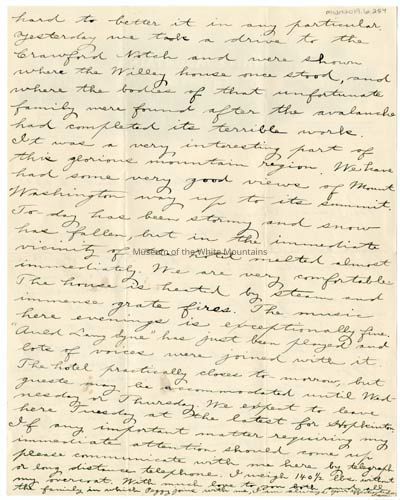 hard to better it in any particular.
Yesterday we took a drive to the
Crawford Notch and were shown
where the Willey house once stood, and
where the bodies of that unfortunate
family were found after the avalanche
had completed its terrible work.
It was a very interesting part of
this glorious mountain region. We have
had some very good views of Mount
Washington way up to its summit.
To day has been stormy and snow
has fallen but in the immediate
vicinity of melted almost
Museum of the White Mountains
immediately. We are very comfortable
The house is heated by steam and
immense grate fires. The music
here evenings is exceptionally fine,
"Auld Lang Syne" has just been played and
lots of voices were joined with it.
The hotel practically closes to morrow, but
guests may be accommodated until Wed-
nesday or Thursday. We expect to leave
here Tuesday at the latest for Hopkinton
If any important matter requiring my
immediate attention should come up
please communicate with me here by telegraph
or long distance telephone. I weigh 140½ lbs. without
my overcoat. With much love to you both and
the family in which Peggy joins with me, I am